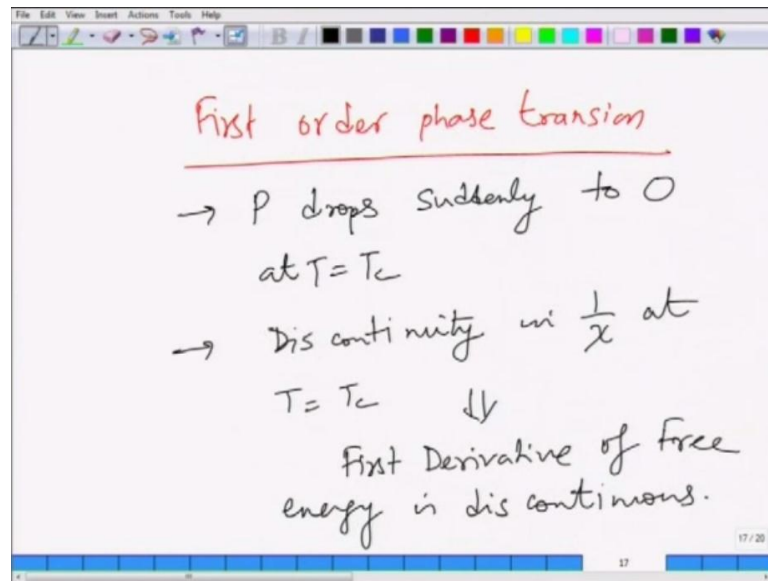 File Edit View Insert Actions Tools Help
B I
First order phase transion
→ P drops suddenly to 0
at T = Tc
→ Discontinuity in 1/χ at
T = Tc ⇓
First Derivative of free
energy is discontinous.
17 / 20
17